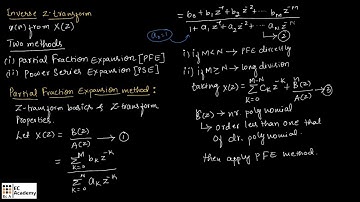 Inverse Z-transform
x(n) from X(Z)
Two methods
(i) Partial Fraction Expansion [PFE]
(ii) Power Series Expansion [PSE]
Partial Fraction Expansion method:
Z-transform basics & Z-transform
Properties.
Let X(Z) = B(Z)/A(Z) → ①
= ∑_{K=0}^{M} b_K z^{-K} / ∑_{K=0}^{N} a_K z^{-K}
a_0=1
= b_0 + b_1 z^{-1} + b_2 z^{-2} + ... b_M z^{-M} / 1 + a_1 z^{-1} + a_2 z^{-2} + ... a_N z^{-N} → ②
i) if M<N → PFE directly
ii) if M≥N → long division
taking X(Z) = ∑_{K=0}^{M-N} C_K z^{-K} + B̃(Z)/A(Z) → ③
B̃(Z) → nr. polynomial
↳ order less than one that
of dr. polynomial.
then apply PFE method.
EC
Academy